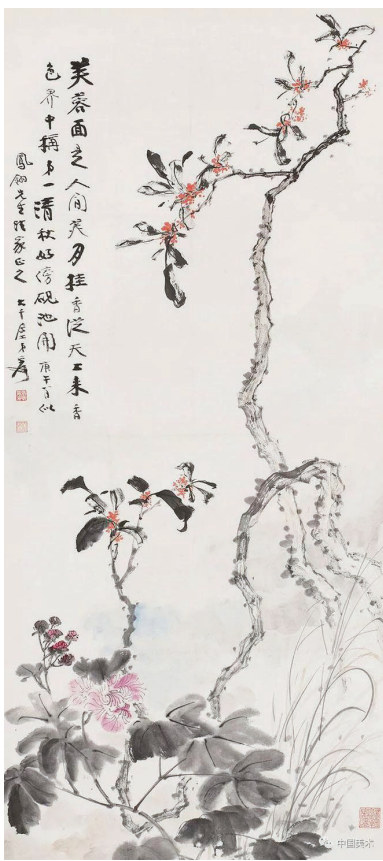 芙蓉面是人間美月桂香從天上来香
色界中稱第一清秋好傍硯池開 庚午寫似
鳳先生法家正之 大千居士爰
中国美术